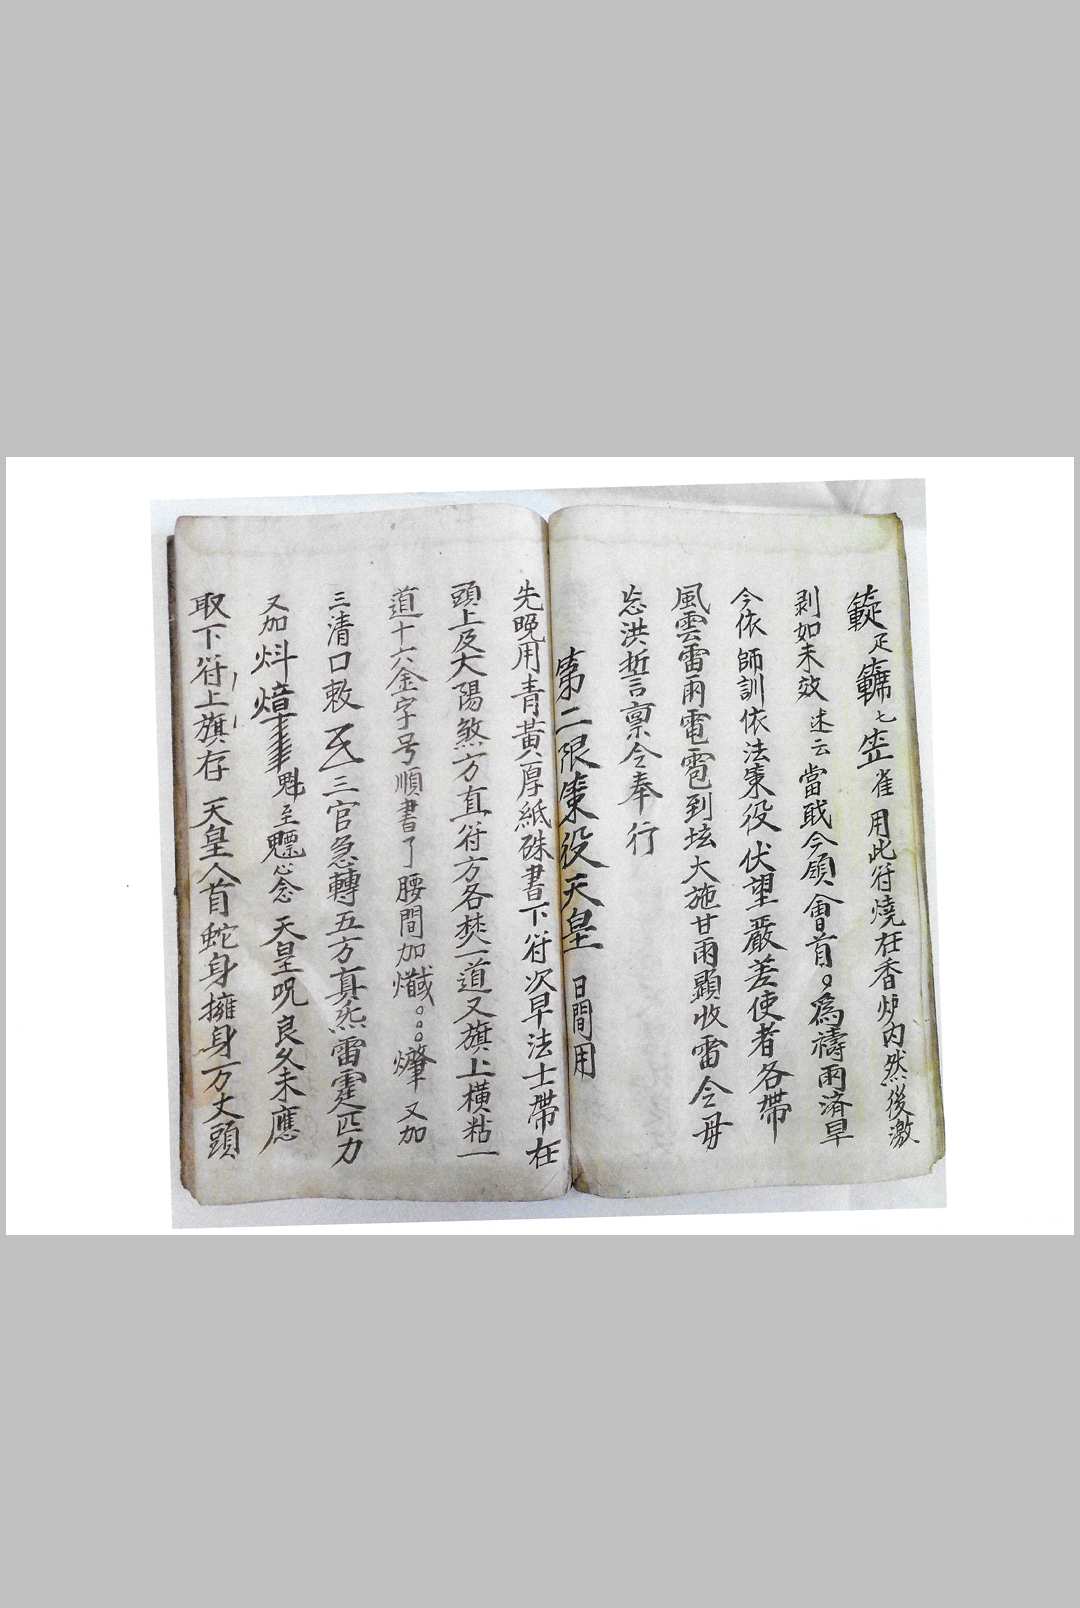 疋 七 雀 用此符燒在香炉内然後激
剥如未效 述云 當職今領會首。為禱雨済旱
今依 師訓依法策役伏望嚴差使者各帶
風雲雷雨電雹到坛大施甘雨顯收雷令毋
忘洪誓言禀令奉行
第二限策役天皇 日間用
先晚用青黃厚紙硃書下符次早法士帶在
頭上及大陽煞方直符方各焚一道又旗上横粘一
道十六金字号順書了腰間加 。。。 又加
三清口敕 三官急轉五方真炁雷霆匹力
又加 魁至魒心念 天皇咒良久未應
取下符上旗存 天皇人首蛇身擁身一万丈頭